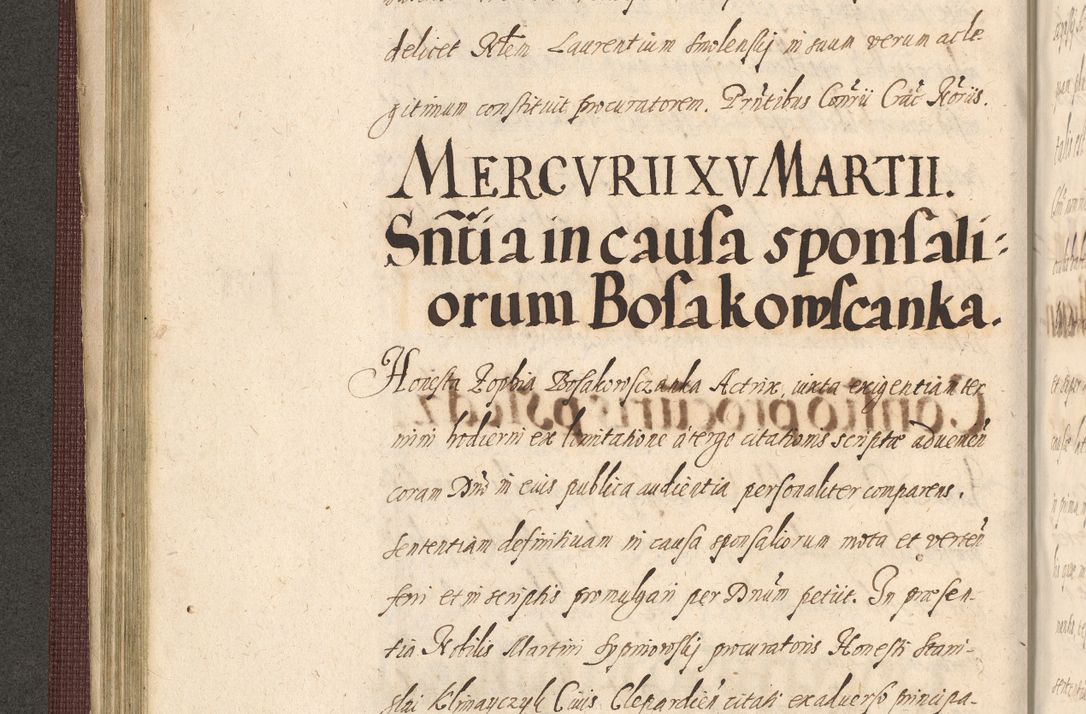 delicet Nbłem Laurentium Smolenskj in suum verum ac le
gitimum constituit procuratorem. Prñtibus Comrii Crac̃ Nõriis.
MERCVRII XV MARTII.
Sñtia in cauſa sponſali-
orum Boſakowſcanka.
Honesta Zophia Boſakowſczanka Actrix, iuxta exigentiam ter
mini hodierni ex limitatione a tergo citationis scriptæ adueneñ
coram Dño in eius publica audientia personaliter comparens.
Sententiam definitiuam in cauſa sponſaliorum mota et verteñ
ferri et in scriptis promulgari per Dnũm petiit. In præsen-
tia Nobilis Martini procuratoris Honesti Stani-
slai Klimayczyk Ciuis Clepardieñ citati ex aduerso principa-